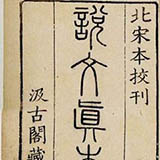 北宋本校刊
說文真本
汲古閣藏